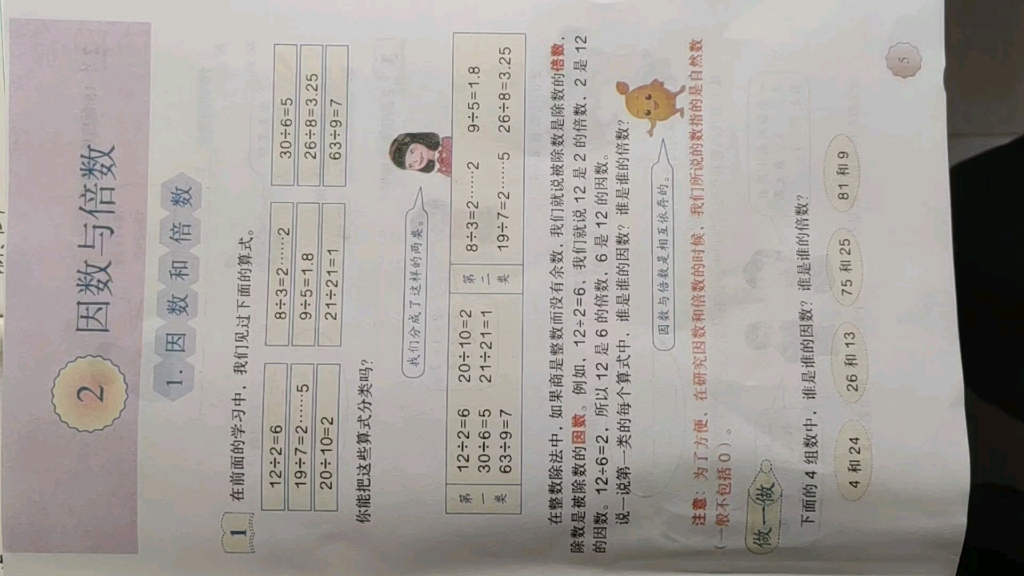 2 因数与倍数
1. 因数和倍数
1 在前面的学习中，我们见过下面的算式。
12÷2=6 8÷3=2……2 30÷6=5
19÷7=2……5 9÷5=1.8 26÷8=3.25
20÷10=2 21÷21=1 63÷9=7
你能把这些算式分类吗？
我们分成了这样的两类。
第一类
12÷2=6 20÷10=2
30÷6=5 21÷21=1
63÷9=7
第二类
8÷3=2……2 9÷5=1.8
19÷7=2……5 26÷8=3.25
在整数除法中，如果商是整数而没有余数，我们就说被除数是除数的倍数，
除数是被除数的因数。例如，12÷2=6，我们就说12是2的倍数，2是12
的因数。12÷6=2，所以12是6的倍数，6是12的因数。
说一说第一类的每个算式中，谁是谁的因数？谁是谁的倍数？
因数与倍数是相互依存的。
注意：为了方便，在研究因数和倍数的时候，我们所说的数指的是自然数
（一般不包括0）。
做一做
下面的4组数中，谁是谁的因数？谁是谁的倍数？
4和24 26和13 75和25 81和9
5